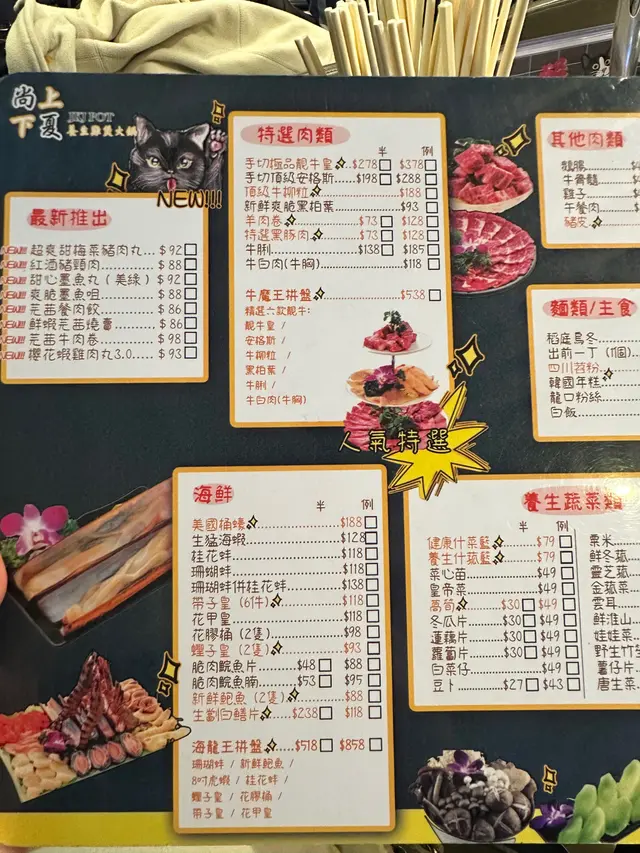 尚上
下夏
HJ POT
養生雞煲火鍋
NEW!!!
最新推出
超爽甜梅菜豬肉丸... $92
紅酒豬頸肉 $88
甜心墨魚丸 (美綠) $92
爽脆墨魚咀 $88
芫茜餐肉餃 $86
鮮蝦芫茜燒賣 $86
芫茜牛肉卷 $98
櫻花蝦雞肉丸3.0..... $93
特選肉類
半 例
手切極品靚牛皇 $278 $378
手切頂級安格斯 $198 $288
頂級牛柳粒 $188
新鮮爽脆黑柏葉 $93
羊肉卷 $73 $128
特選黑豚肉 $73 $128
牛𦟌 $138 $185
牛白肉(牛胸) $118
牛魔王拼盤 $538
精選六款靚牛:
靚牛皇 /
安格斯 /
牛柳粒 /
黑柏葉 /
牛𦟌 /
牛白肉(牛胸)
人氣特選
其他肉類
鵝腸
牛骨髓
雞子
午餐肉
豬皮
麵類/主食
稻庭烏冬
出前一丁 (1個)
四川苕粉
韓國年糕
龍口粉絲
白飯
海鮮
半 例
美國桶蠔 $188
生猛海蝦 $128
桂花蚌 $118
珊瑚蚌 $118
珊瑚蚌併桂花蚌 $138
帶子皇 (6件) $118
花甲皇 $118
花膠桶 (2隻) $98
蟶子皇 (2隻) $93
脆肉鯇魚片 $48 $88
脆肉鯇魚腩 $53 $95
新鮮鮑魚 (2隻) $88
生劏白鱔片 $238 $118
海龍王拼盤 $518 $858
珊瑚蚌 / 新鮮鮑魚 /
8吋虎蝦 / 桂花蚌 /
蟶子皇 / 花膠桶 /
帶子皇 / 花甲皇
養生蔬菜類
半 例
健康什菜籃 $79
養生什菰籃 $79
菜心苗 $49
皇帝菜 $49
萵筍 $30 $49
冬瓜片 $30 $49
蓮藕片 $30 $49
蘿蔔片 $30 $49
白菜仔 $49
豆卜 $27 $43
粟米
鮮冬菰
靈芝菰
金菰菜
雲耳
鮮淮山
娃娃菜
野生竹
薯仔片
唐生菜